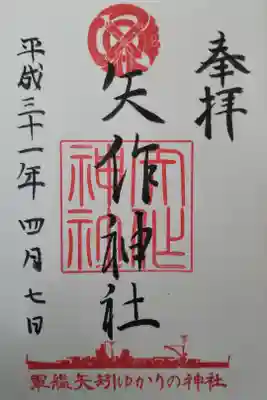 奉拝
矢作神社
平成三十一年 四月 七日
軍艦矢矧ゆかりの神社